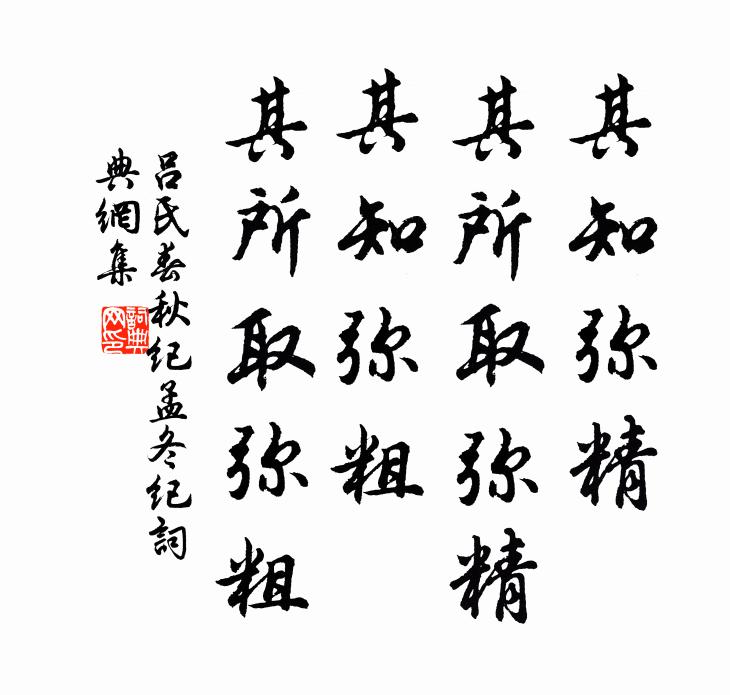 其知弥精
其所取弥精
其知弥粗
其所取弥粗
吕氏春秋纪孟冬纪詞
典網集
詞典
网印